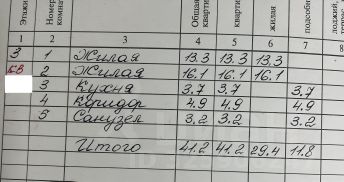 Этажи Номер комнаты Общая кварти кварти жилая подсобн лоджий,
1 2 3 4 5 6 7 8
3 1 Жилая 13.3 13.3 13.3
кв 2 Жилая 16,1 16,1 16,1
3 Кухня 3.7 3.7 3.7
4 Коридор 4.9 4.9 4.9
5 Санузел 3.2 3.2 3.2
Итого 41.2 41.2 29.4 11.8